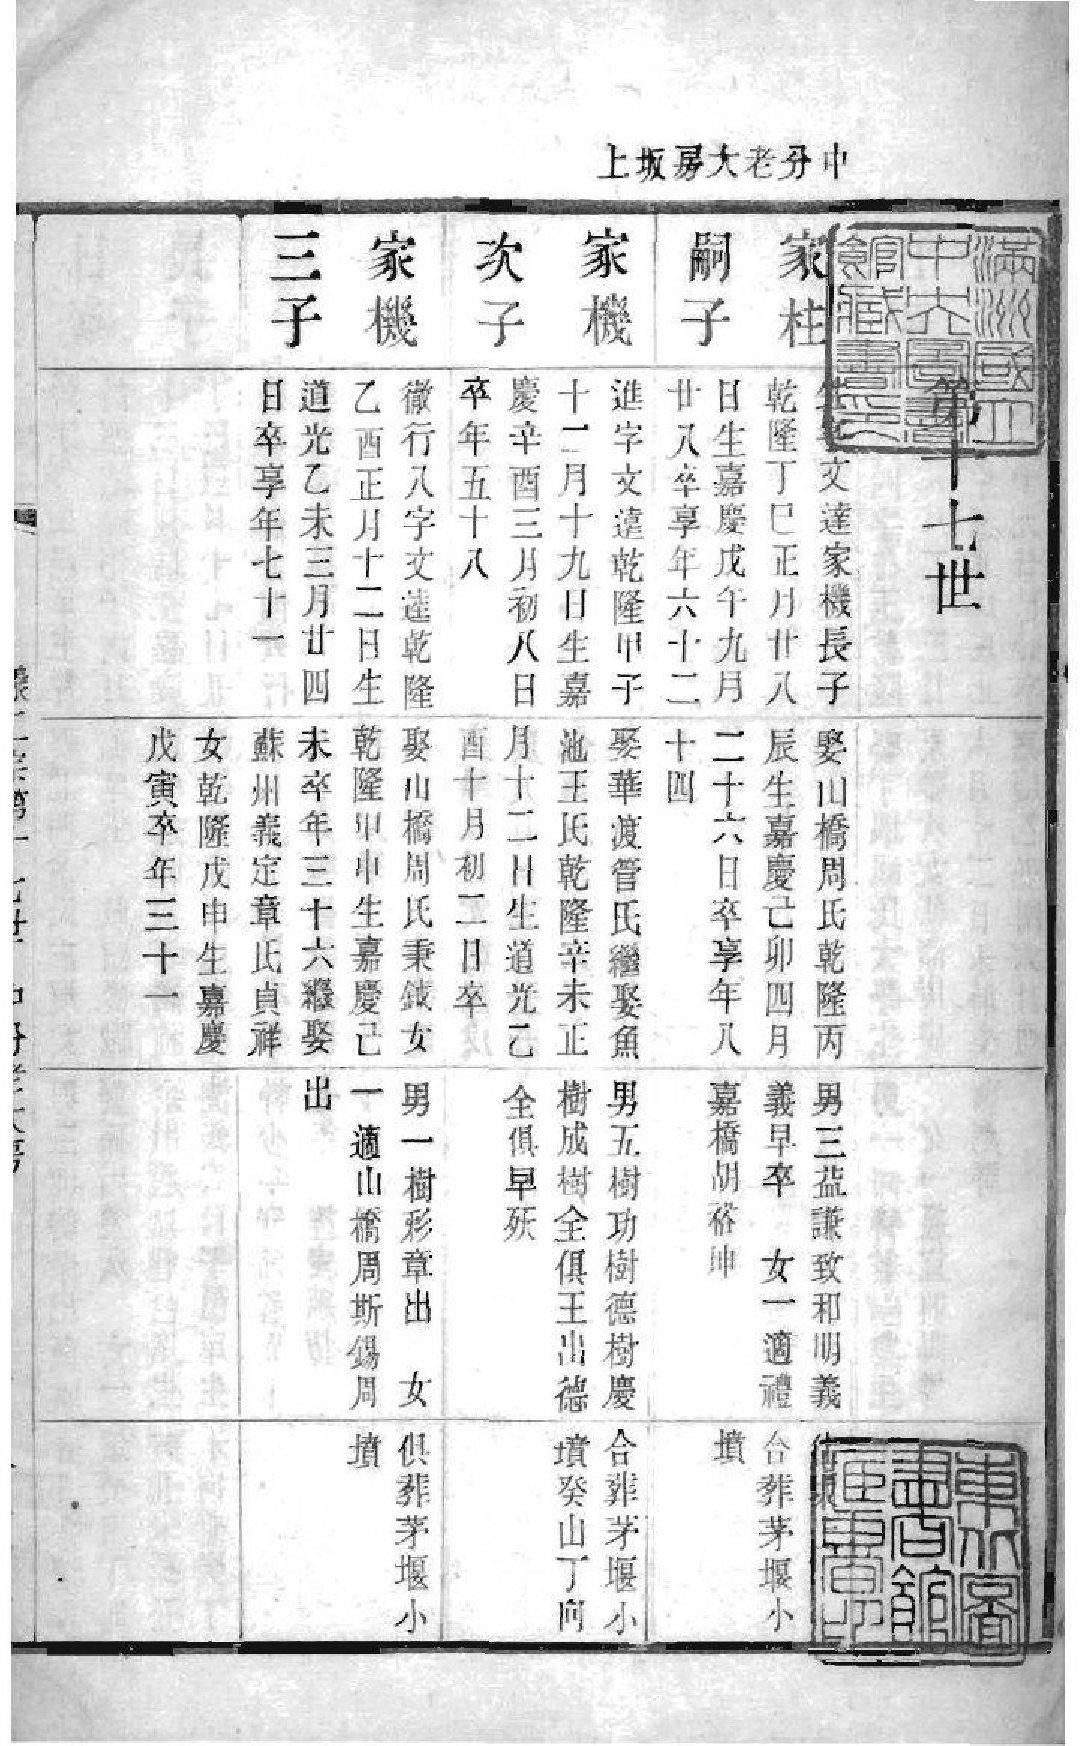 中分老大房坂上
滿洲國立
中央圖書
館藏書印
第十七世
家柱
嗣子
文達家機長子
乾隆丁巳正月廿八
日生嘉慶戊午九月
廿八卒享年六十二
娶山橋周氏乾隆丙
辰生嘉慶己卯四月
二十六日卒享年八
十四
男三益謙致和明義
義早卒 女一適禮
嘉橋胡裕坤
合葬茅堰小
墳
家機
次子
進字文遠乾隆甲子
十二月十九日生嘉
慶辛酉三月初八日
卒年五十八
娶華渡管氏繼娶魚
池王氏乾隆辛未正
月十二日生道光乙
酉十月初二日卒
男五樹功樹德樹慶
樹成樹全俱王出德
全俱早殀
合葬茅堰小
墳癸山丁向
家機
三子
徹行八字文達乾隆
乙酉正月十二日生
道光乙未三月廿四
日卒享年七十一
娶山橋周氏秉鉞女
乾隆甲申生嘉慶己
未卒年三十六繼娶
蘇州義定章氏貞祥
女乾隆戊申生嘉慶
戊寅卒年三十一
男一樹彩章出 女
一適山橋周斯錫周
出
俱葬茅堰小
墳
東北圖
書館